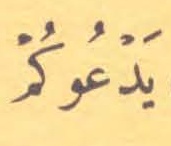 يَدْعُوكُمْ